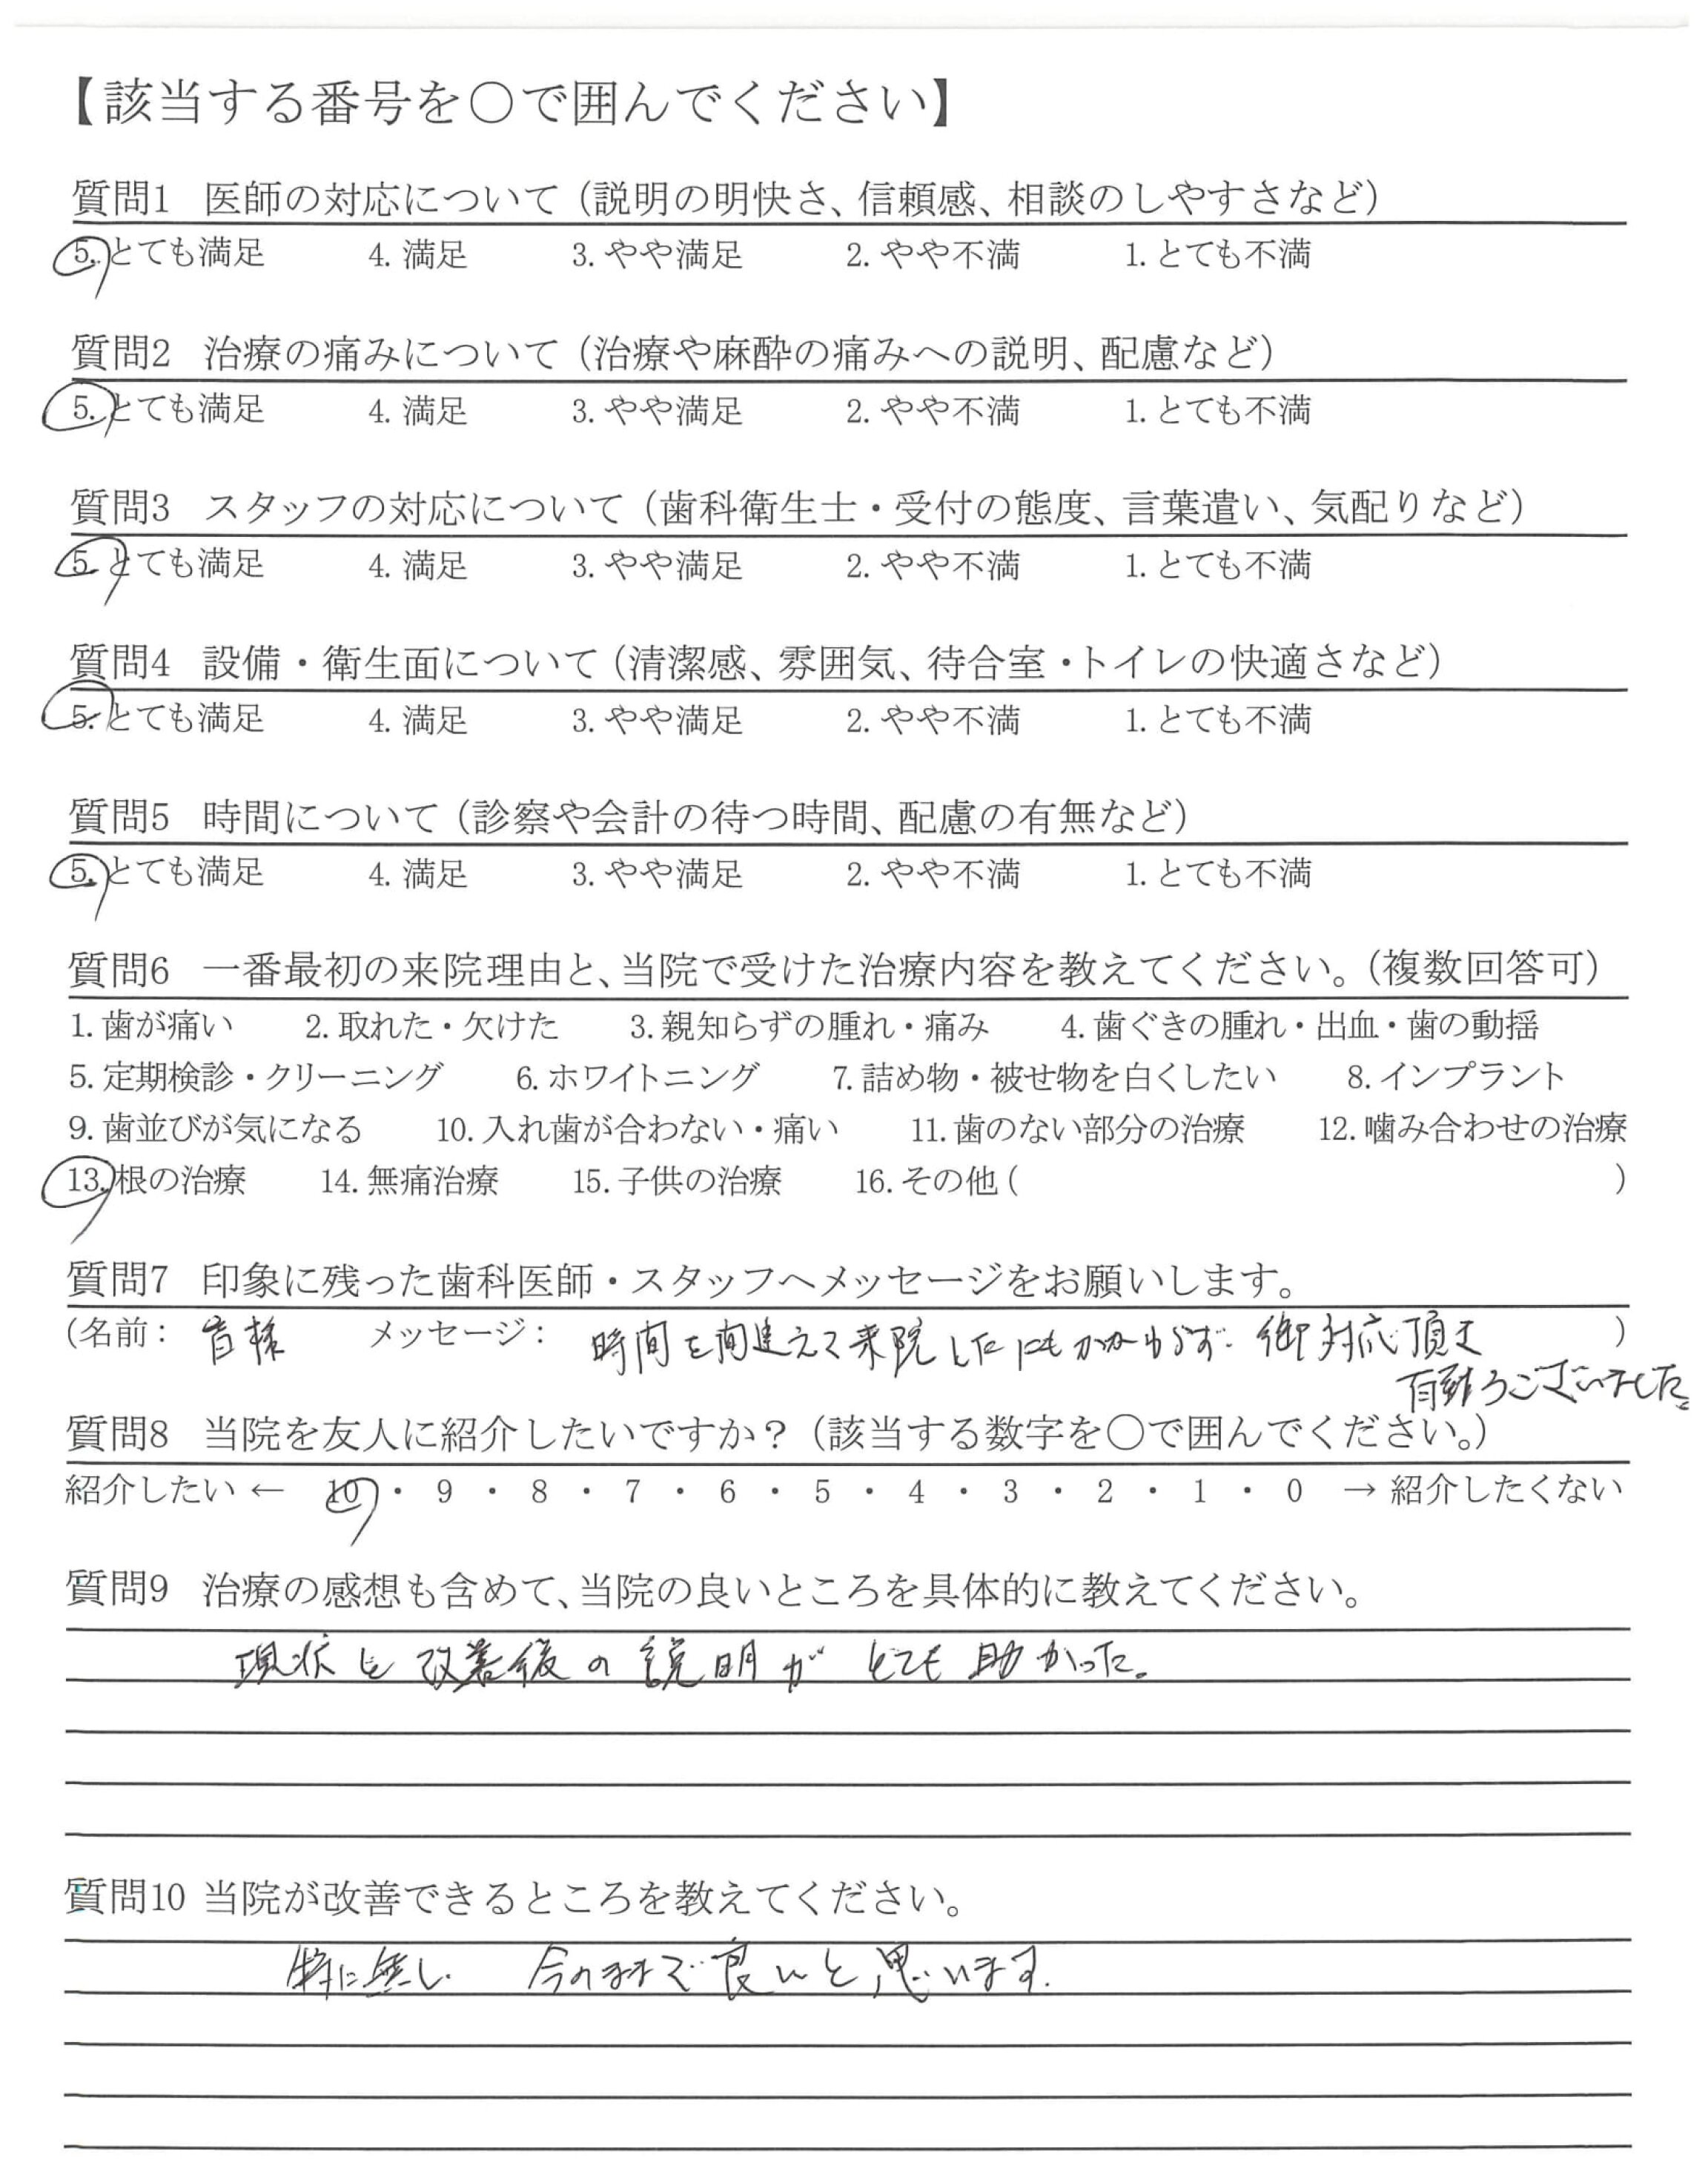 【該当する番号を○で囲んでください】
質問1 医師の対応について（説明の明快さ、信頼感、相談のしやすさなど）
5. とても満足 4. 満足 3. やや満足 2. やや不満 1. とても不満
質問2 治療の痛みについて（治療や麻酔の痛みへの説明、配慮など）
5. とても満足 4. 満足 3. やや満足 2. やや不満 1. とても不満
質問3 スタッフの対応について（歯科衛生士・受付の態度、言葉遣い、気配りなど）
5. とても満足 4. 満足 3. やや満足 2. やや不満 1. とても不満
質問4 設備・衛生面について（清潔感、雰囲気、待合室・トイレの快適さなど）
5. とても満足 4. 満足 3. やや満足 2. やや不満 1. とても不満
質問5 時間について（診察や会計の待つ時間、配慮の有無など）
5. とても満足 4. 満足 3. やや満足 2. やや不満 1. とても不満
質問6 一番最初の来院理由と、当院で受けた治療内容を教えてください。（複数回答可）
1. 歯が痛い 2. 取れた・欠けた 3. 親知らずの腫れ・痛み 4. 歯ぐきの腫れ・出血・歯の動揺
5. 定期検診・クリーニング 6. ホワイトニング 7. 詰め物・被せ物を白くしたい 8. インプラント
9. 歯並びが気になる 10. 入れ歯が合わない・痛い 11. 歯のない部分の治療 12. 噛み合わせの治療
13. 根の治療 14. 無痛治療 15. 子供の治療 16. その他（ ）
質問7 印象に残った歯科医師・スタッフへメッセージをお願いします。
（名前： 皆様 メッセージ： 時間を間違えて来院したにもかかわらず、御対応頂き ）
有難うございました。
質問8 当院を友人に紹介したいですか？（該当する数字を○で囲んでください。）
紹介したい ← 10 ・ 9 ・ 8 ・ 7 ・ 6 ・ 5 ・ 4 ・ 3 ・ 2 ・ 1 ・ 0 → 紹介したくない
質問9 治療の感想も含めて、当院の良いところを具体的に教えてください。
現状と改善後の説明がとても助かった。
質問10 当院が改善できるところを教えてください。
特に無し. 今のままで良いと思います.